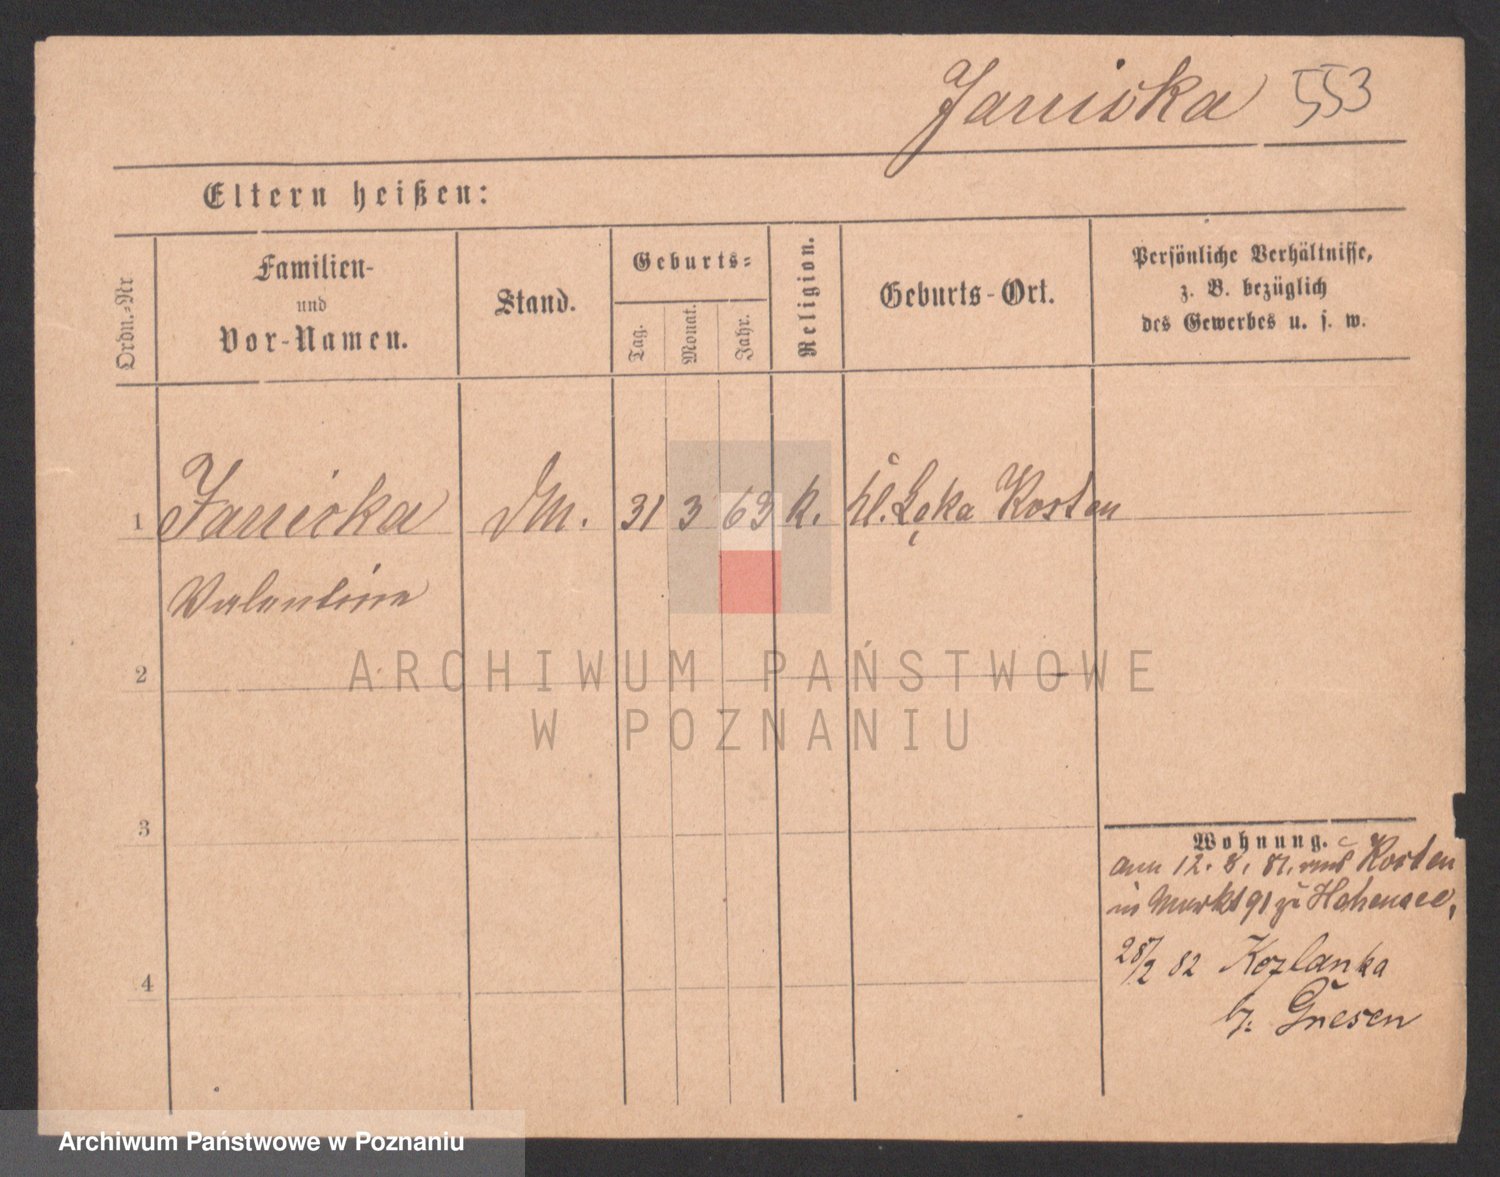 Janicka 553
Eltern heißen:
Ordn.-Nr
Familien-
und
Vor-Namen.
Stand.
Geburts-
Tag.
Monat.
Jahr.
Religion.
Geburts-Ort.
Persönliche Verhältnisse,
z. B. bezüglich
des Gewerbes u. s. w.
1 Janicka DM. 31 3 63 K. Kl. Łęka Kosten
Valentine
2
3
4
Wohnung.
am 12. 8. 81. aus Kosten
in Markt 91 zu Hohensee,
28/2 82 Kozlanka
b. Gnesen
ARCHIWUM PAŃSTWOWE
W POZNANIU
Archiwum Państwowe w Poznaniu